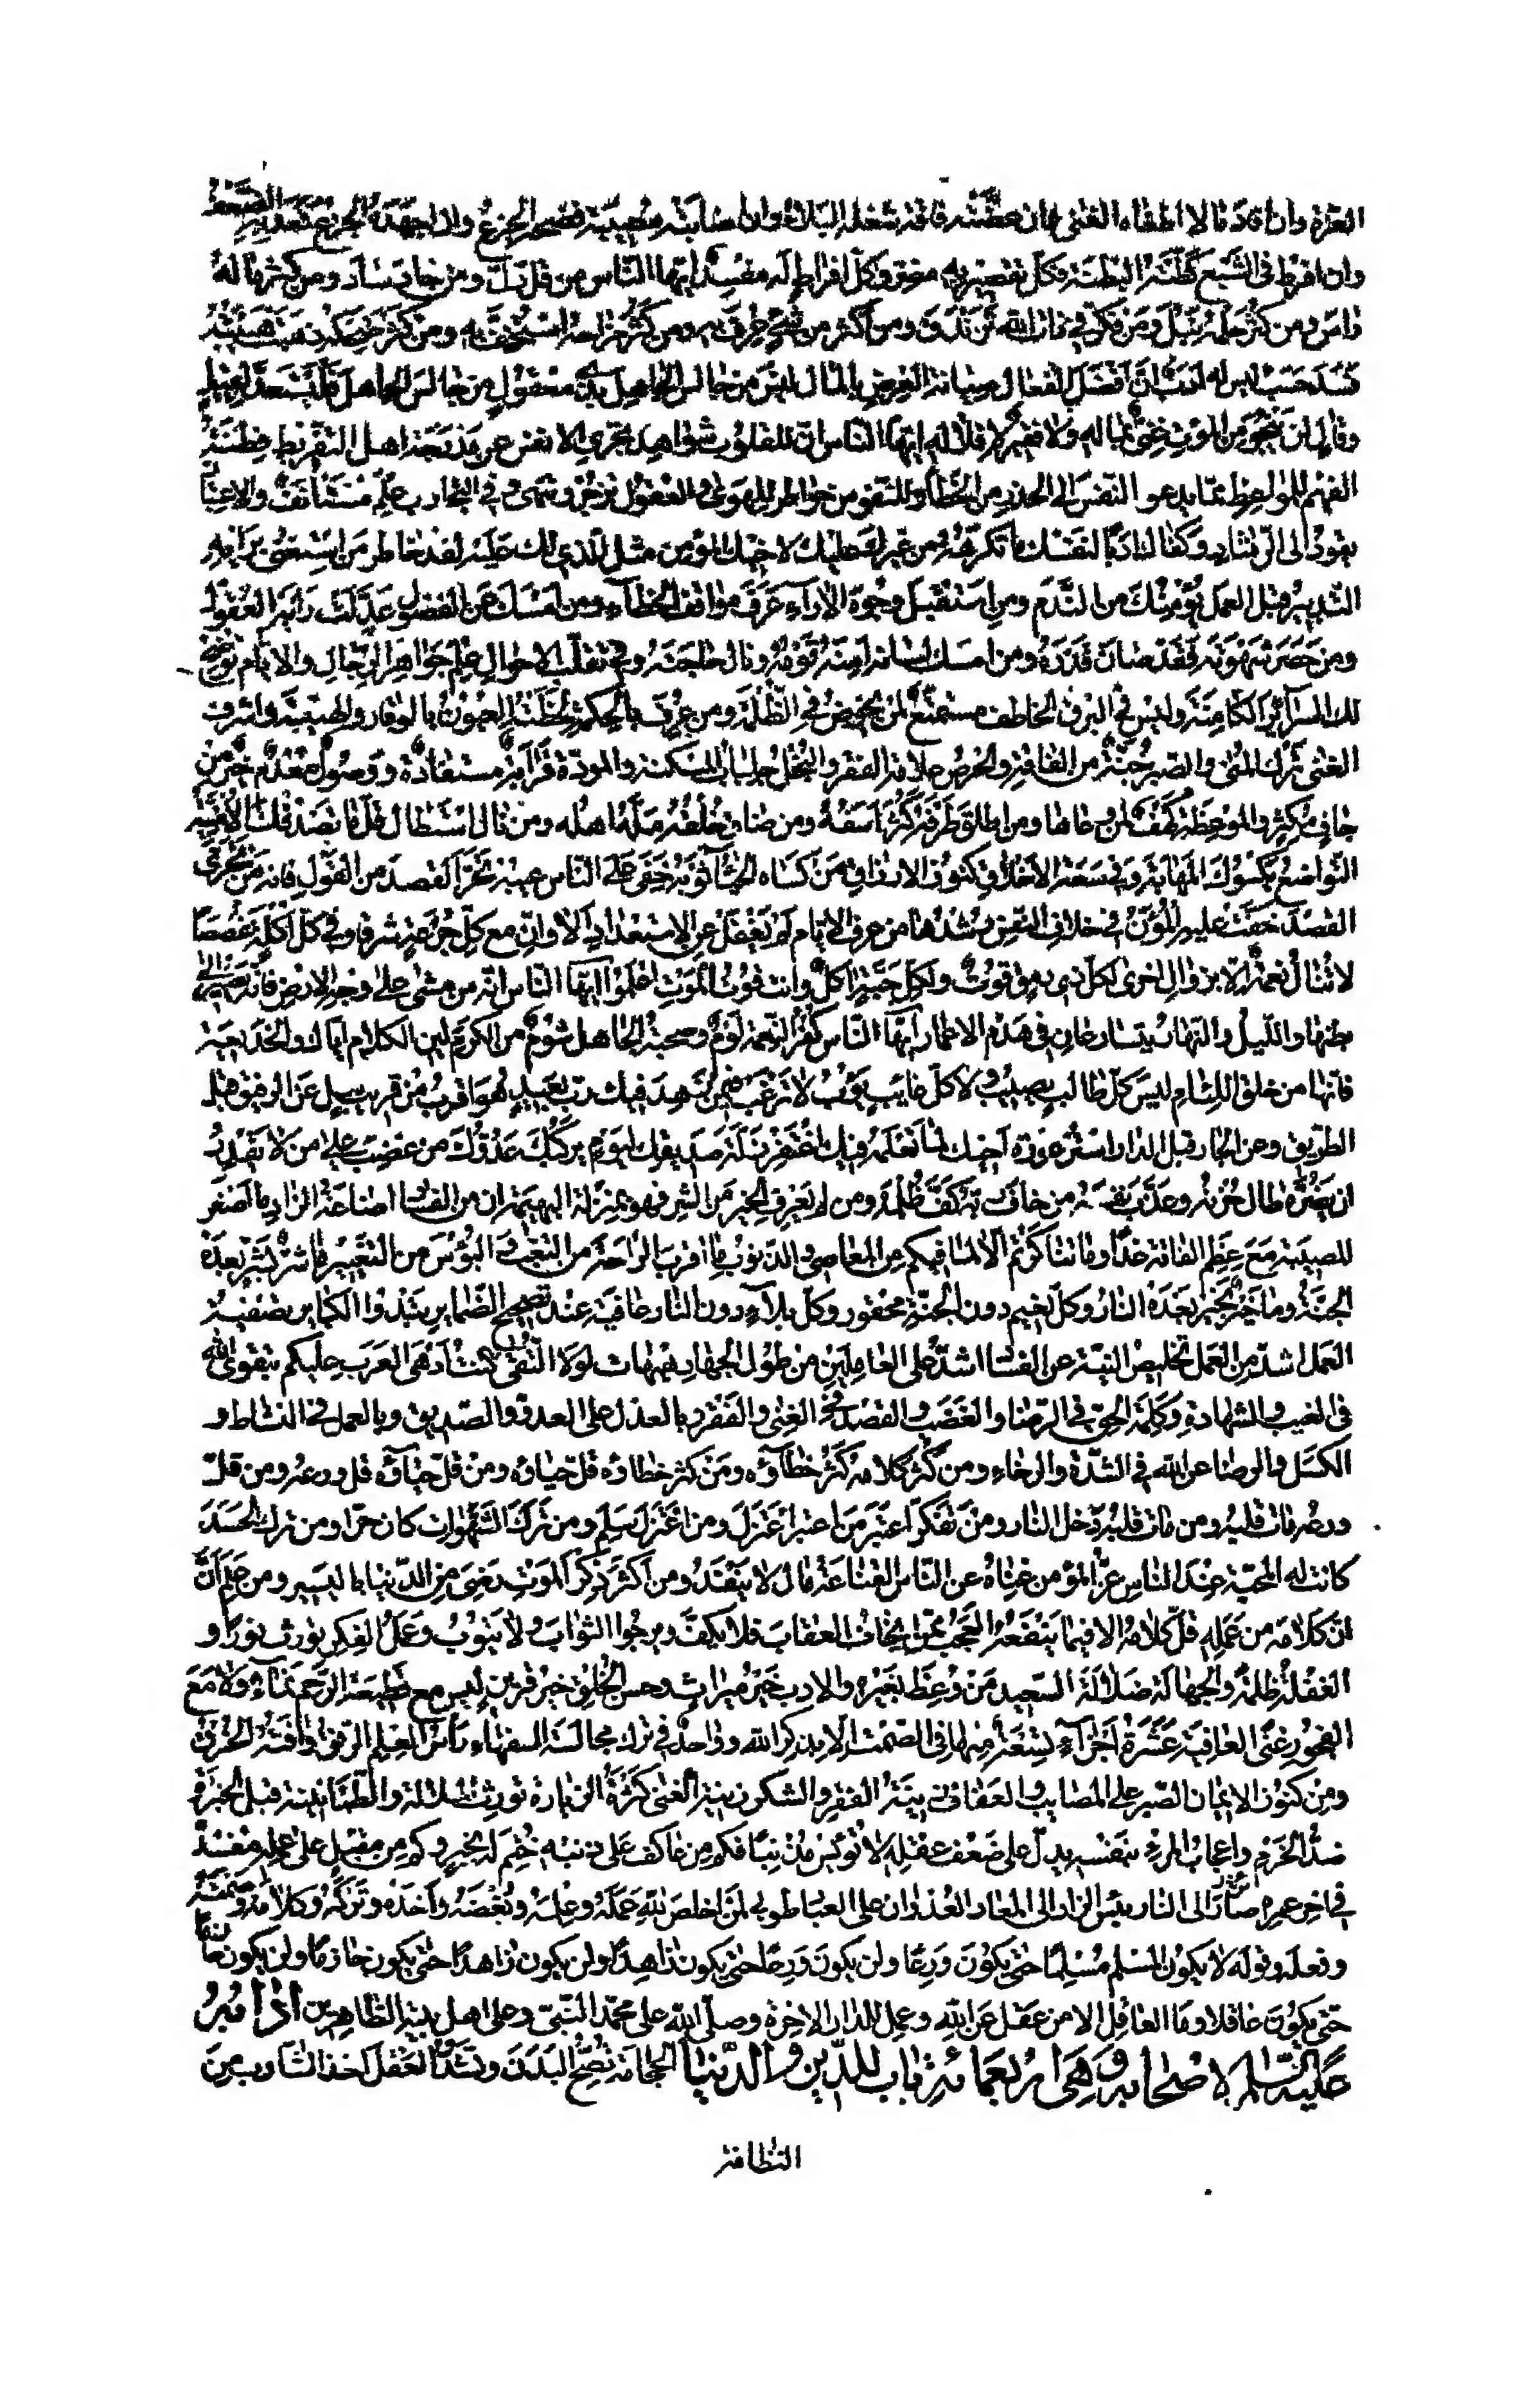 الغرّة وان افاد مالا اطغاه الغنى وان عضّته فاقة شغله البلاء وان اصابته مصيبة فضحه الجزع وان اجهده الجزع قعد به الضعف
وان افرط في الشبع كظّته البطنة فكلّ تقصير به مضرّ وكلّ افراط له مفسد ايّها النّاس من قلّ ذلّ ومن جاد ساد ومن كثر ماله
راس ومن كثر حلمه نبل ومن فكّر في ذات الله تزندق ومن اكثر من شيء عرف به ومن كثر مزاحه استخفّ به ومن كثر ضحكه ذهبت هيبته
فسد حسب من ليس له ادب انّ افضل الفعال صيانة العرض بالمال ليس من جالس الجاهل بذي معقول من جالس الجاهل فليستعدّ لقيل
وقال لن ينجو من الموت غنيّ بماله ولا فقير لاقلاله ايّها النّاس انّ للقلوب شواهد تجري الانفس عن مدرجة اهل التفريط فطنة
الفهم للمواعظ ممّا يدعو النّفس الى الحذر من الخطأ وللنّفوس خواطر للهوى والعقول تزجر وتنهى وفي التجارب علم مستأنف والاعتبار
يقود الى الرّشاد وكفاك ادبا لنفسك ما تكرهه من غيرك عليك لاخيك المؤمن مثل الّذي لك عليه لقد خاطر من استغنى برأيه
التّدبير قبل العمل يؤمنك من النّدم ومن استقبل وجوه الاراء عرف مواقف الخطاء ومن امسك عن الفضول عدّلت رأيه العقول
ومن حصر شهوته فقد صان قدره ومن امسك لسانه امنه قومه ونال حاجته وفي تقلّب الاحوال علم جواهر الرّجال والايّام توضح
لك السّرائر الكامنة وليس في البرق الخاطف مستمتع لمن يخوض في الظّلمة ومن عرف بالحكمة لحظته العيون بالوقار والهيبة واشرف
الغنى ترك المنى والصّبر جنّة من الفاقة والحرص علامة الفقر والبخل جلباب المسكنة والمودّة قرابة مستفادة ووصول معدم خير من
جاف مكثر والموعظة كهف لمن وعاها ومن اطلق طرفه كثر اسفه ومن ضاق خلقه ملّه اهله ومن نال استطال قلّ ما تصدقك الامنيّة
التّواضع يكسوك المهابة وفي سعة الاخلاق كنوز الارزاق من كساه الحياء ثوبه خفي على النّاس عيبه تحرّ القصد من القول فانّه من تحرّى
القصد خفّت عليه المؤن في خلاف النّفس رشدها من عرف الايّام لم يغفل عن الاستعداد الا وانّ مع كلّ جرعة شرقا وفي كلّ اكلة غصصا
لا تنال نعمة الّا بزوال اخرى لكلّ ذي رمق قوت ولكلّ حبّة اكل وانت قوت الموت اعلموا ايّها النّاس انّه من مشى على وجه الارض فانّه يصير الى
بطنها واللّيل والنّهار يتسارعان في هدم الاعمار ايّها النّاس كفر النّعمة لؤم وصحبة الجاهل شؤم من الكرم لين الكلام ايّاك والخديعة
فانّها من خلق اللّئام ليس كلّ طالب يصيب ولا كلّ غايب يؤب لا ترغب فيمن زهد فيك ربّ بعيد هو اقرب من قريب سل عن الرفيق قبل
الطّريق وعن الجار قبل الدار استر عورة اخيك لما تعلمه فيك اغتفر زلّة صديقك ليوم يركبك عدوّك من غضب على من لا يقدر
ان يضرّه طال حزنه وعذّب نفسه من خاف ربّه كفّ ظلمه ومن لم يعرف الخير من الشر فهو بمنزلة البهيمة ان من الفساد اضاعة الزاد ما اصغر
المصيبة مع عظم الفاقة غدا وما تناكرتم الّا لما فيكم من المعاصي والذّنوب ما اقرب الرّاحة من التّعب والبؤس من التّغيير ما شرّ بشرّ بعده
الجنّة وما خير بخير بعده النار وكلّ نعيم دون الجنّة محقور وكلّ بلاء دون النار عافية عند تصحيح الضّماير تبدوا الكباير تصفية
العمل اشدّ من العمل تخليص النيّة عن الفساد اشدّ على العاملين من طول الجهاد هيهات لولا التّقى كنت ادهى العرب عليكم بتقوى الله
في الغيب والشهادة وكلمة الحقّ في الرّضا والغضب والقصد في الغنى والفقر وبالعدل على العدوّ والصّديق وبالعمل في النشاط و
الكسل والرضا عن الله في الشدّة والرخاء ومن كثر كلامه كثر خطاؤه ومن كثر خطاؤه قلّ حياؤه ومن قلّ حياؤه قل ورعه ومن قلّ
ورعه مات قلبه ومن مات قلبه دخل النار ومن تفكّر اعتبر من اعتبر اعتزل ومن اعتزل سلم ومن ترك الشّهوات كان حرّا ومن ترك الحسد
كانت له المحبّة عند الناس عزّ المؤمن غناه عن النّاس القناعة مال لا ينفد ومن اكثر ذكر الموت رضى من الدّنيا باليسير ومن علم انّ
انّ كلامه من عمله قلّ كلامه الا فيما ينفعه العجب ممّن يخاف العقاب فلا يكفّ ويرجوا الثواب ولا يتوب وعمل الفكر يورث نورا و
الغفلة ظلمة والجهالة ضلالة السّعيد من وعظ بغيره والادب خير ميراث وحسن الخلق خير قرين ليس مع قطيعة الرّحم نماء ولا مع
الفجور غنى العافية عشرة اجزاء تسعة منها في الصّمت الّا بذكر الله وواحد في ترك مجالسة السفهاء رأس العلم الرفق وافته الخرق
ومن كنوز الايمان الصّبر على المصايب والعفاف زينة الفقر والشكر زينة الغنى كثرة الزيارة تورث الملالة والطّمانينة قبل الخبرة
ضدّ الحزم واعجاب المرء بنفسه يدلّ على ضعف عقله لا تؤيس مذنبا فكم من عاكف على ذنبه ختم له بخير وكم من مقبل على عمله مفسد
في اخر عمره صائر الى النار بئس الزاد الى المعاد العدوان على العباد طوبى لمن اخلص لله عمله وعلمه وحبه وبغضه واخذه وتركه وكلامه وصمته
وفعله وقوله لا يكون المسلم مسلما حتى يكون ورعا ولن يكون ورعا حتى يكون زاهدا ولن يكون زاهدا حتى يكون حازما ولن يكون حازما
حتى يكون عاقلا وما العاقل الا من عقل عن الله وعمل للدار الاخرة وصلّى الله على محمّد النّبيّ وعلى اهل بيته الطّاهرين آدابه
عليه السّلم لاصحابه وهي اربعمائة باب للدّين والدّنيا الحجامة تصحّ البدن وتشدّ العقل اخذ الشّارب من
النظافة